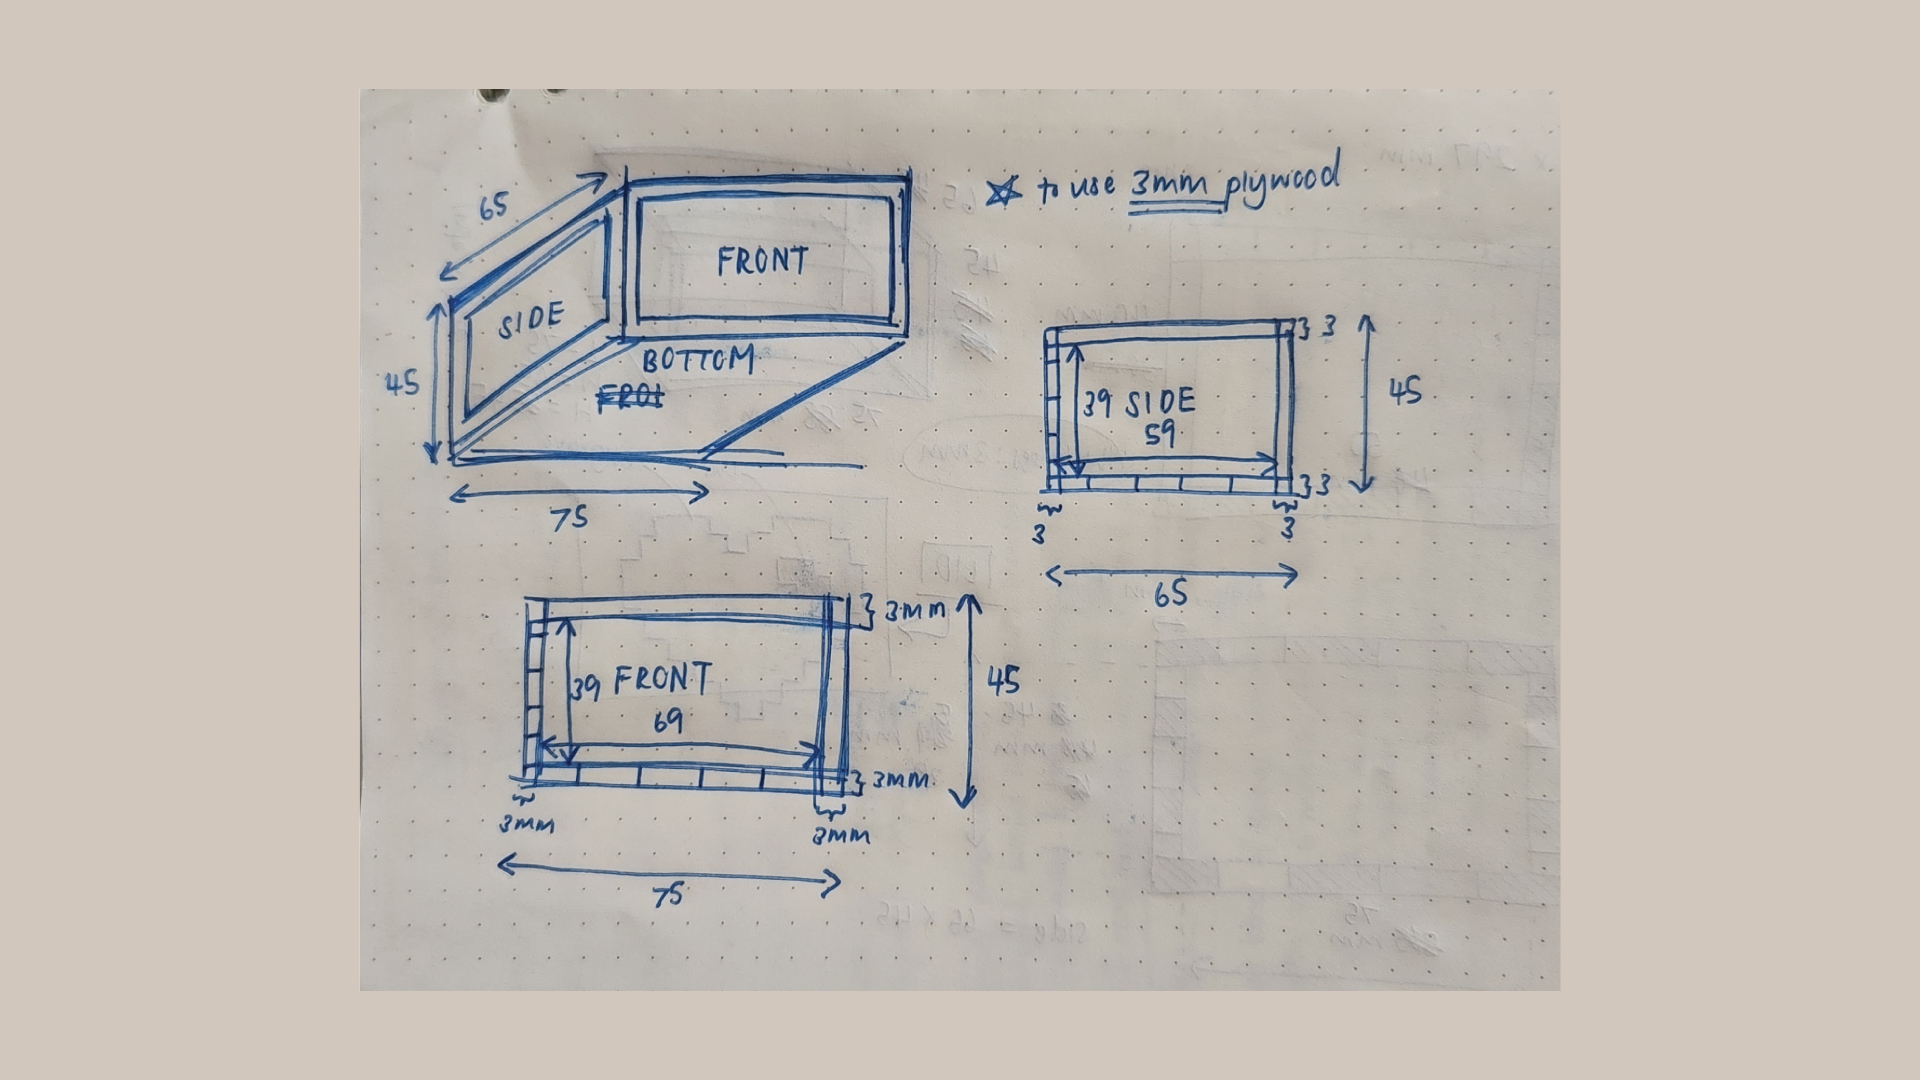 ☆ to use 3mm plywood
65
FRONT
SIDE
45
BOTTOM
75
3
39 SIDE
59
45
3
3
3
65
3mm
39 FRONT
69
45
3mm
3mm
3mm
75